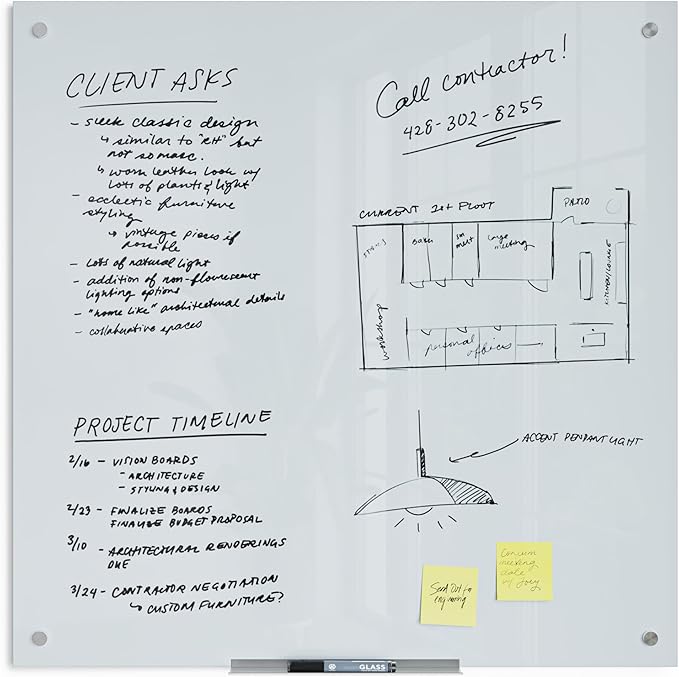 CLIENT ASKS
- sleek classic design
↳ similar to "RH" but
not so masc.
↳ worn leather look w/
lots of plants & light
- ecclectic furniture
styling
↳ vintage pieces if
possible
- Lots of natural light
- addition of non-flourescent
lighting options
- "home like" architectural details
- collaborative spaces
PROJECT TIMELINE
2/16 - VISION BOARDS
- ARCHITECTURE
- STYLING & DESIGN
2/23 - FINALIZE BOARDS
FINALIZE BUDGET PROPOSAL
3/10 - ARCHITECTURAL RENDERINGS
DUE
3/24 - CONTRACTOR NEGOTIATION
↳ CUSTOM FURNITURE?
Call contractor!
428-302-8255
CURRENT 1st FLOOR
PATIO
large
meeting
KITCHEN/LOUNGE
workshop
personal
offices
ACCENT PENDANT LIGHT
Send Out for
engineering
Confirm
meeting
date
w/ Joey
GLASS